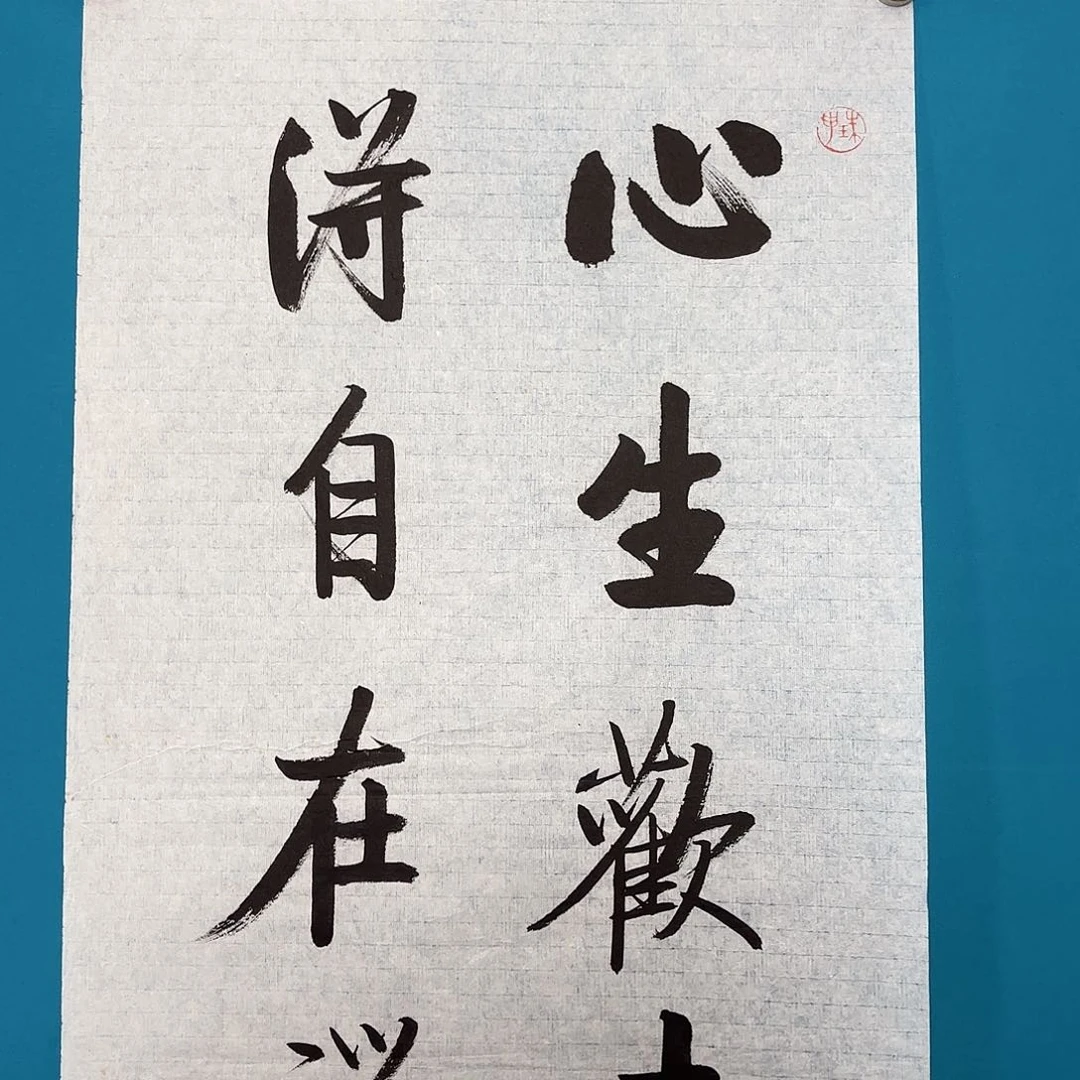 心生歡
得自在